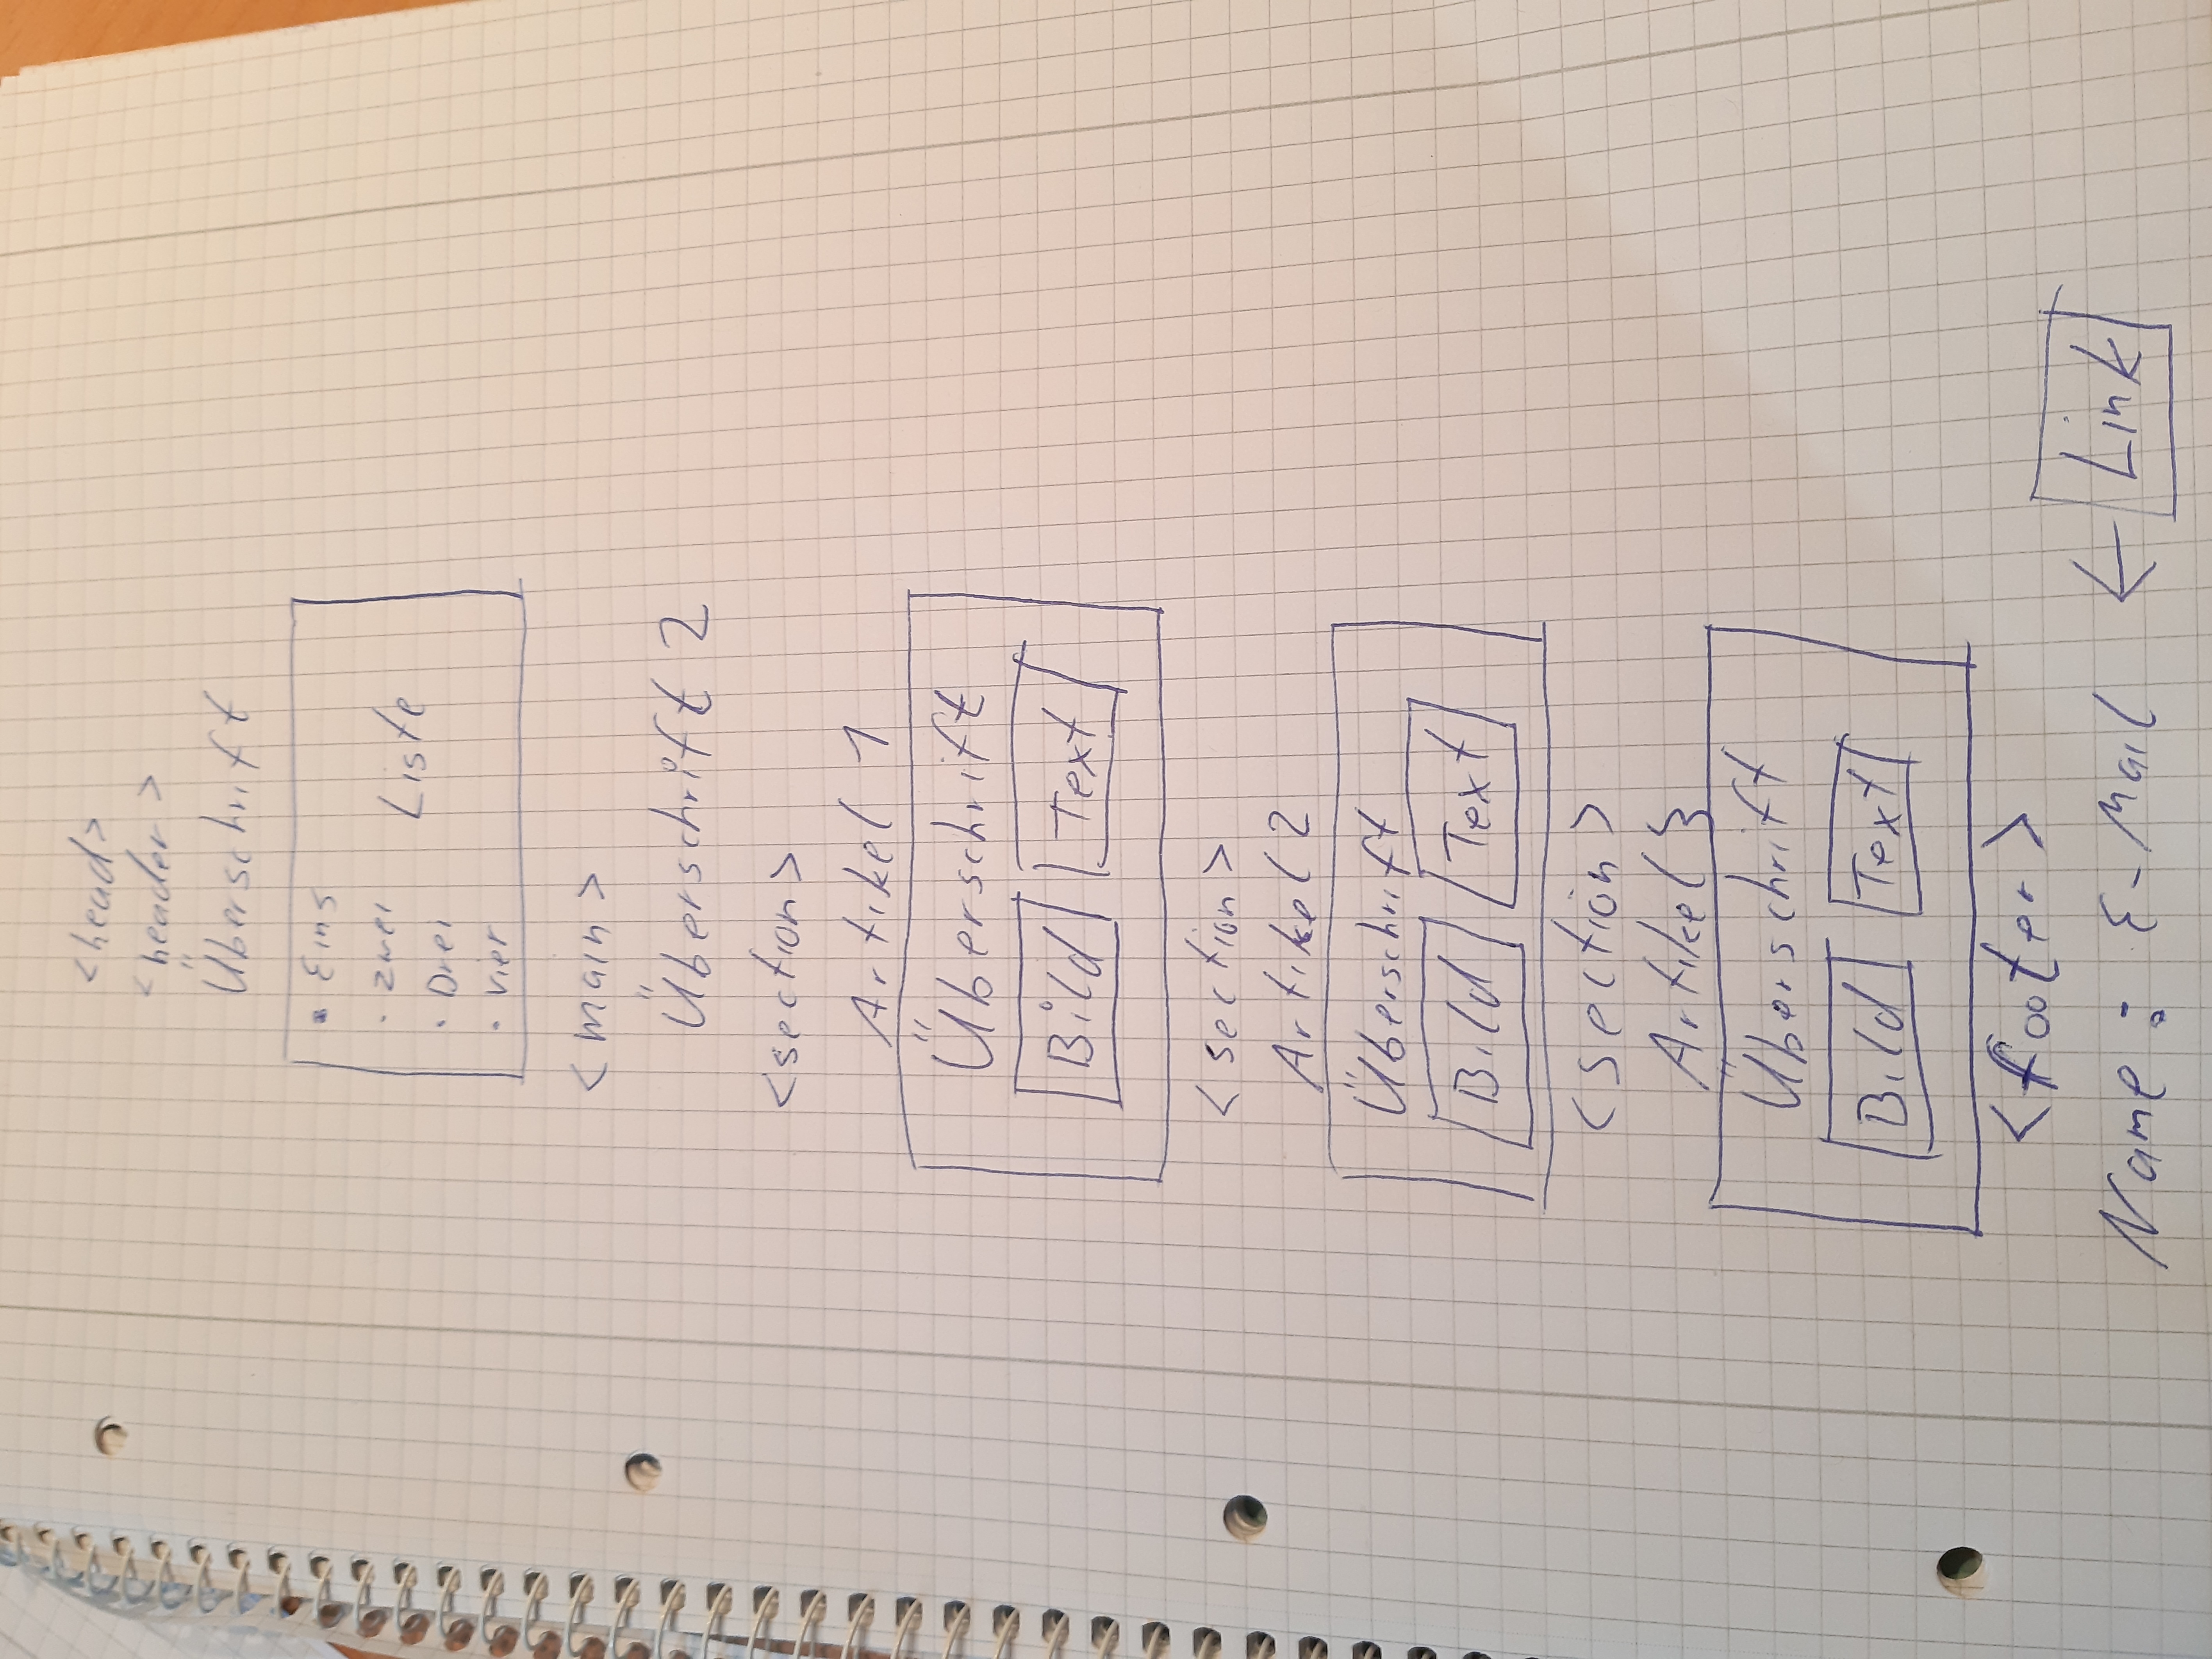 <head>
<header>
Überschrift
• Eins
• zwei
Liste
• Drei
• vier
<main>
Überschrift 2
<section>
Artikel 1
Überschrift
Bild Text
<section>
Artikel 2
Überschrift
Bild Text
<section>
Artikel 3
Überschrift
Bild Text
<footer>
Name : E-Mail ← Link